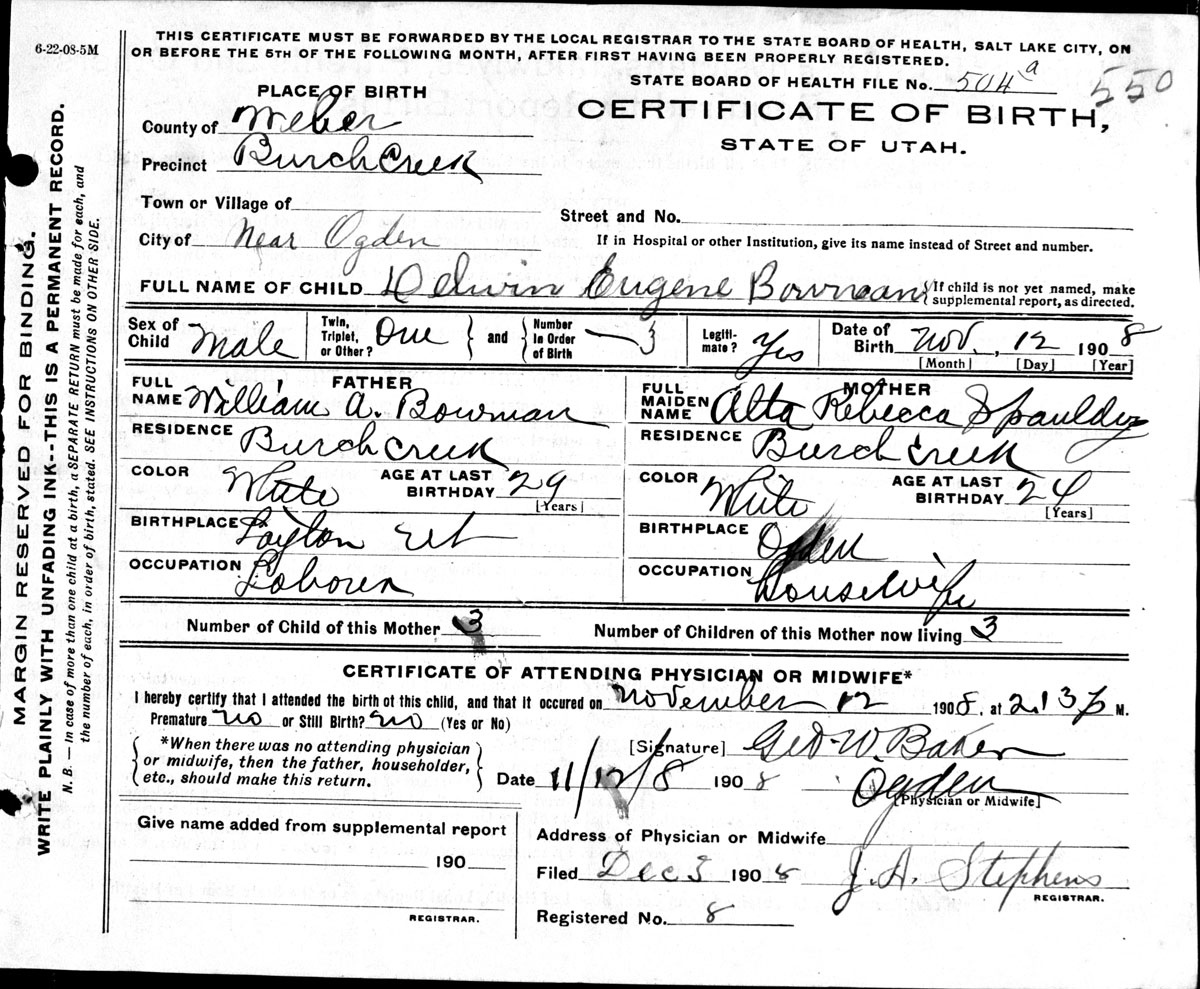 6-22-08-5M
THIS CERTIFICATE MUST BE FORWARDED BY THE LOCAL REGISTRAR TO THE STATE BOARD OF HEALTH, SALT LAKE CITY, ON
OR BEFORE THE 5TH OF THE FOLLOWING MONTH, AFTER FIRST HAVING BEEN PROPERLY REGISTERED.
STATE BOARD OF HEALTH FILE No. 504 a 550
PLACE OF BIRTH
CERTIFICATE OF BIRTH,
STATE OF UTAH.
County of Weber
Precinct Burch Creek
Town or Village of
Street and No.
City of Near Ogden
If in Hospital or other Institution, give its name instead of Street and number.
FULL NAME OF CHILD Delwin Eugene Bowman {If child is not yet named, make supplemental report, as directed.
Sex of Child Male Twin, Triplet, or Other? One } and { Number in Order of Birth 3 Legitimate? Yes Date of Birth Nov. 12 1908
[Month] [Day] [Year]
FATHER
FULL NAME William A. Bowman
RESIDENCE Burch Creek
COLOR White AGE AT LAST BIRTHDAY 29
[Years]
BIRTHPLACE Layton Ut
OCCUPATION Laborer
MOTHER
FULL MAIDEN NAME Alta Rebecca Spaulding
RESIDENCE Burch Creek
COLOR White AGE AT LAST BIRTHDAY 24
[Years]
BIRTHPLACE Ogden
OCCUPATION Housewife
Number of Child of this Mother 3 Number of Children of this Mother now living 3
CERTIFICATE OF ATTENDING PHYSICIAN OR MIDWIFE*
I hereby certify that I attended the birth of this child, and that it occured on November 12 1908, at 2.13 p M.
Premature no or Still Birth? no (Yes or No)
*When there was no attending physician
or midwife, then the father, householder,
etc., should make this return.
[Signature] Geo. W. Baker
Date 11/12/8 1908 Ogden
[Physician or Midwife]
Give name added from supplemental report
190
REGISTRAR.
Address of Physician or Midwife
Filed Dec 3 1908 J. A. Stephens
REGISTRAR.
Registered No. 8
MARGIN RESERVED FOR BINDING.
WRITE PLAINLY WITH UNFADING INK--THIS IS A PERMANENT RECORD.
N. B. — In case of more than one child at a birth, a SEPARATE RETURN must be made for each, and
the number of each, in order of birth, stated. SEE INSTRUCTIONS ON OTHER SIDE.